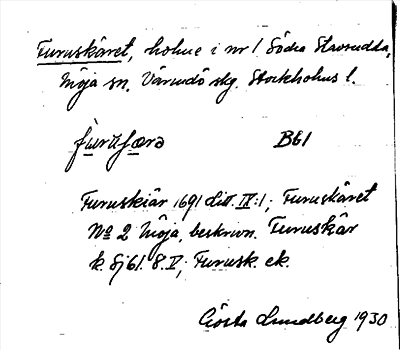 Furuskäret, holme i nr 1 Södra Stavsudda,
Möja sn. Värmdö skg. Stockholms l.
fu̱ru̱ʃæ̱rə Bb1
Furuskiär 1691 Litt. IV:1; Furuskäret
No 2 Möja, beskrivn. Furuskär
k. Sj 61. 8. V; Furusk. ek.
Gösta Lundberg 1930